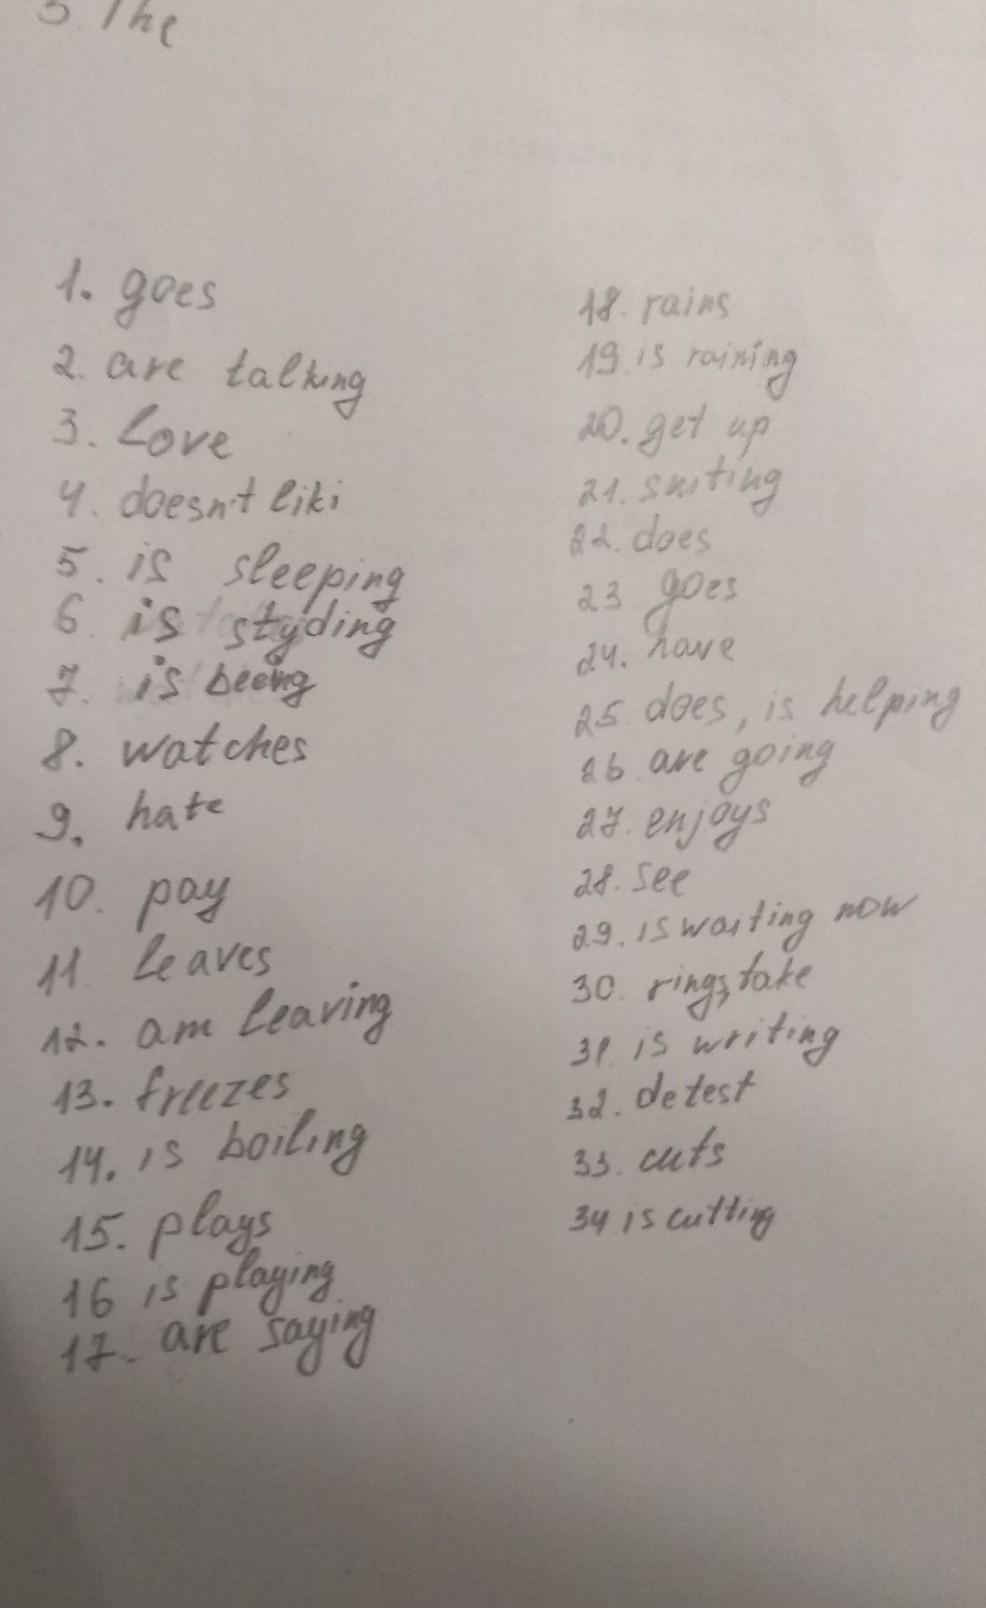 3. The
1. goes
2. are talking
3. Love
4. doesn't liki
5. is sleeping
6 is styding
7. is being
8. watches
9. hate
10. pay
11 leaves
12. am leaving
13. freezes
14. is boiling
15. plays
16 is playing
17. are saying
18. rains
19 is raining
20. get up
21. smiting
22. does
23 goes
24. have
25 does, is helping
26 are going
27. enjoys
28. see
29. is waiting now
30. rings, take
31. is writing
32. detest
33. cuts
34 is cutting